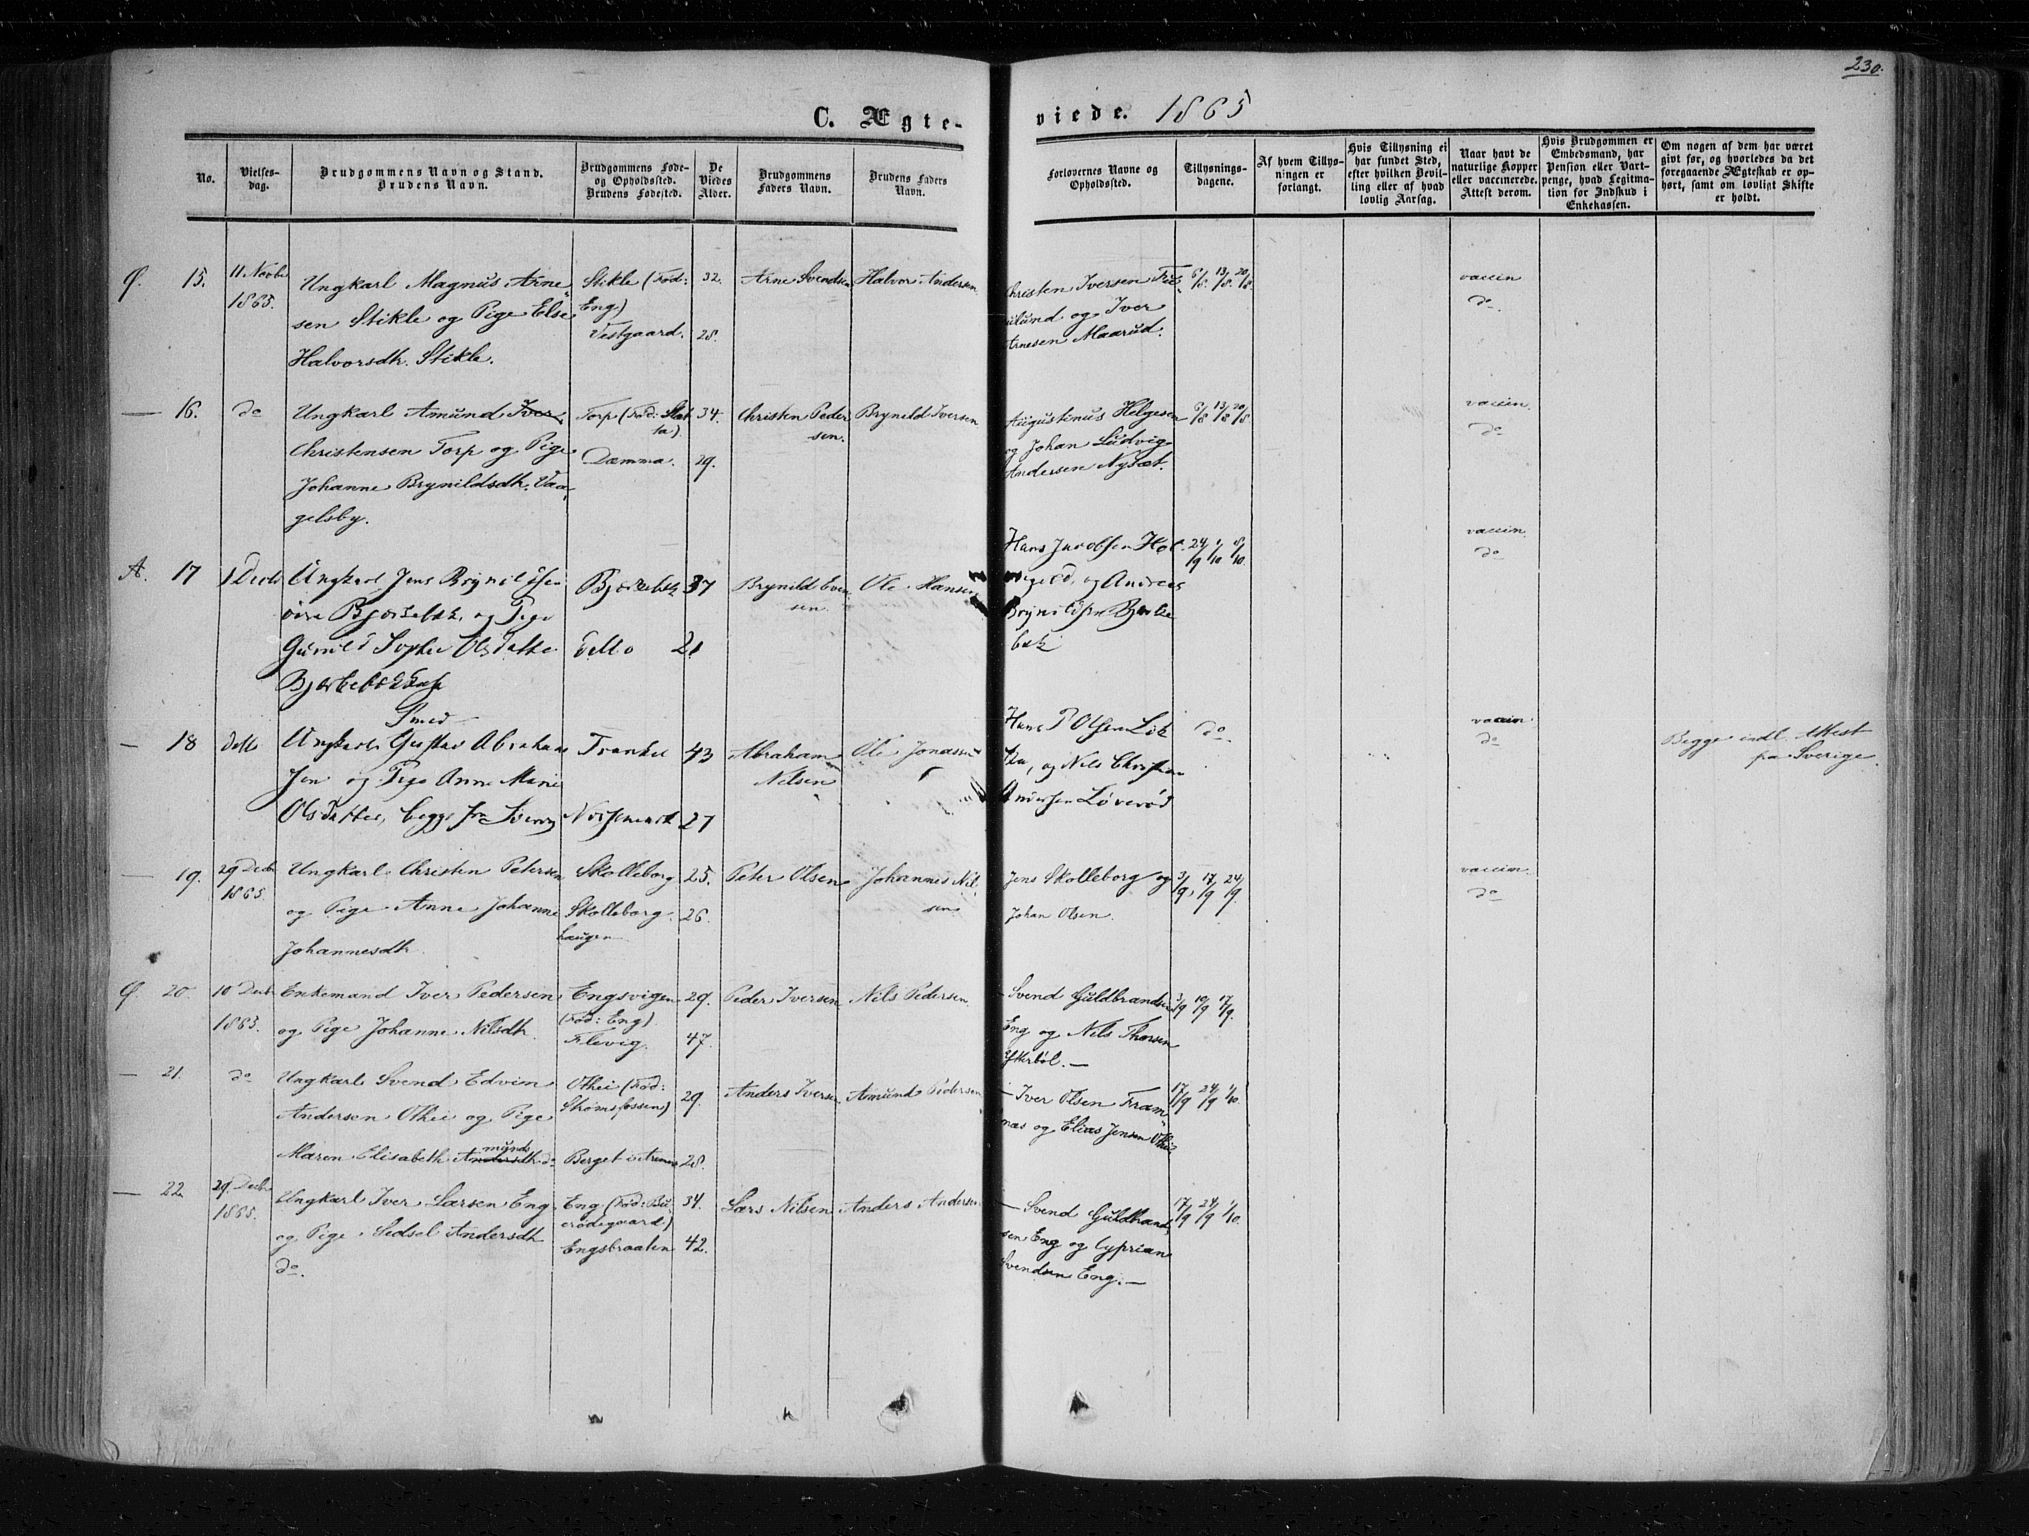 230.
C. Ægte-
viede. 1865
No.
Vielses-
dag.
Brudgommens Navn og Stand.
Brudens Navn.
Brudgommens Føde-
og Opholdssted.
Brudens Fødested.
De
Viedes
Alder.
Brudgommens
Faders Navn.
Brudens Faders
Navn.
Forlovernes Navne og
Opholdssted.
Tillysnings-
dagene.
Af hvem Tillys-
ningen er
forlangt.
Hvis Tillysning ei
har fundet Sted,
efter hvilken Bevil-
ling eller af hvad
lovlig Aarsag.
Naar havt de
naturlige Kopper
eller vaccinerede.
Attest derom.
Hvis Brudgommen er
Embedsmand, har
Pension eller Vart-
penge, hvad Legitma-
tion for Indskud i
Enkekassen.
Om nogen af dem har været
givt før, og hvorledes da det
foregaaende Ægteskab er op-
hørt, samt om lovligt Skifte
er holdt.
Ø. 15.
11 Novbr
1865.
Ungkarl Magnus Arne-
sen Stikle og Pige Else
Halvorsdtr. Stikle.
Stikle (Fød:
Eng)
Vestgaard.
32.
28.
Arne Svendsen
Halvor Andersen
Christen Iversen
lund og Iver
Arnesen Maarud.
6/8 13/8 20/8
vaccin
do
— 16.
do
Ungkarl Amund Iver
Christensen Torp og Pige
Johanne Brynildsdtr. Vaa-
gelsby.
Torp (Fød: Slet-
ta)
Damma.
34.
29.
Christen Peder-
sen.
Brynild Iversen
Augustinus Helgesen
og Johan Ludvig
Andersen Nysæt.
6/8 13/8 20/8
vaccin.
do
A. 17
1 Decbr
Ungkarl Jens Brynildsen
Bjørkebek, og Pige
Gunild Sophie Olsdatter
Bjørkebek
Bjørkebek
detto
37
21
Brynild Even-
sen.
Ole Hansen
Hans Jacobsen Hol-
og Andreas
Brynildsen Bjørke
bek
24/9 1/10 8/10
vaccin.
do
— 18
detto
Smed
Ungkarl Gustav Abraham
sen og Pige Anne Marie
Olsdatter, begge fra
43
27
Abraham
Nilsen
Ole Jonassen
Hans P Olsen
og Nils Christian
Andersen Løverød
do
vaccin.
do
Begge indl. Attest
fra Sverige.
— 19.
29 Decbr
1865.
Ungkarl Christen Petersen
og Pige Anne Johanne
Johannesdtr.
Skolleborg
Skolleborg-
haugen
25.
26.
Peter Olsen
Johannes Nil-
sen
Jens Skolleborg og
Johan Olsen.
3/9, 17/9 24/9.
vaccin.
do
Ø. 20
10 Decbr
1865.
Enkemand Iver Pedersen
og Pige Johanne Nilsdtr.
Engsvigen
(Fød: Eng).
Flevig.
29.
47.
Peder Iversen
Nils Pedersen.
— Svend Guldbrandsen
Eng og Nils Thorsen
3/9 10/9 17/9.
— 21.
do
Ungkarl Svend Edvin
Andersen Othei og Pige
Maren Elisabeth Andersdtr munds do
Othei (Fød:
Strømsfossen)
Berget i
29.
28.
Anders Iversen
Amund Pedersen
— Iver Olsen Fram-
næs og Elias Jensen Othei
17/9 24/9 1/10.
— 22
29 Decbr
1865.
Ungkarl Iver Larsen Eng
og Pige Sidsel Andersdtr
do.
Eng (Fød: Bu-
erødegaard)
Engsbraaten
34.
42.
Lars Nilsen
Anders Andersen
— Svend Guldbrand-
sen Eng og Cyprian
Svendsen Eng. —
17/9 24/9 1/10.